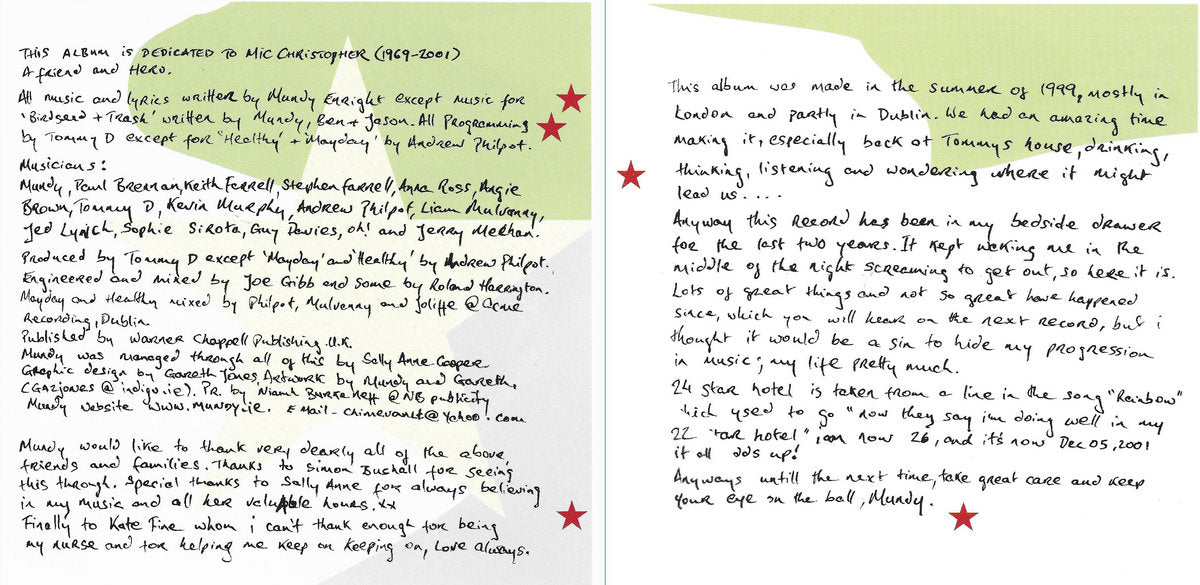 THIS ALBUM is DEDICATED TO MIC CHRISTOPHER (1969-2001)
A friend and HERO.
All music and lyrics written by Mundy Enright except music for
'Birdseed + Trash' written by Mundy, Ben + Jason. All Programming
by Tommy D except for 'Healthy' + 'Mayday' by Andrew Philpot.
Musicians:
Mundy, Paul Brennan, Keith Farrell, Stephen Farrell, Anna Ross, Angie
Brown, Tommy D, Kevin Murphy, Andrew Philpot, Liam Mulvanny,
Jed Lynch, Sophie Sirota, Guy Davies, oh! and Jerry Meehan.
Produced by Tommy D except 'Mayday' and 'Healthy' by Andrew Philpot.
Engineered and mixed by Joe Gibb and some by Roland Harrington.
Mayday and Healthy mixed by Philpot, Mulvanny and Joliffe @ Acme
Recording, Dublin.
Published by Warner Chappell Publishing U.K.
Mundy was managed through all of this by Sally Anne Cooper
Graphic design by Gareth Jones, Artwork by Mundy and Gareth,
(GAzjones @ indigo.ie). Pr. by Niamh @ NB publicity
Mundy website www.Mundy.ie. EMail - chimevault@yahoo.com
Mundy would like to thank very dearly all of the above,
friends and families. Thanks to Simon for seeing
this through. Special thanks to Sally Anne for always believing
in my music and all her valuable hours. xx
Finally to Kate Fine whom i can't thank enough for being
my nurse and for helping me keep on keeping on, Love always.
This album was made in the summer of 1999, mostly in
London and partly in Dublin. We had an amazing time
making it, especially back at Tommys house, drinking,
thinking, listening and wondering where it might
lead us....
Anyway this record has been in my bedside drawer
for the last two years. It kept waking me in the
middle of the night screaming to get out, so here it is.
Lots of great things and not so great have happened
since, which you will hear on the next record, but i
thought it would be a sin to hide my progression
in music; my life pretty much.
24 star hotel is taken from a line in the song "Rainbow"
hich used to go "now they say i'm doing well in my
22 tar hotel", i am now 26, and it's now Dec 05, 2001
it all dds up!
Anyways untill the next time, take great care and keep
your eye on the ball, Mundy.